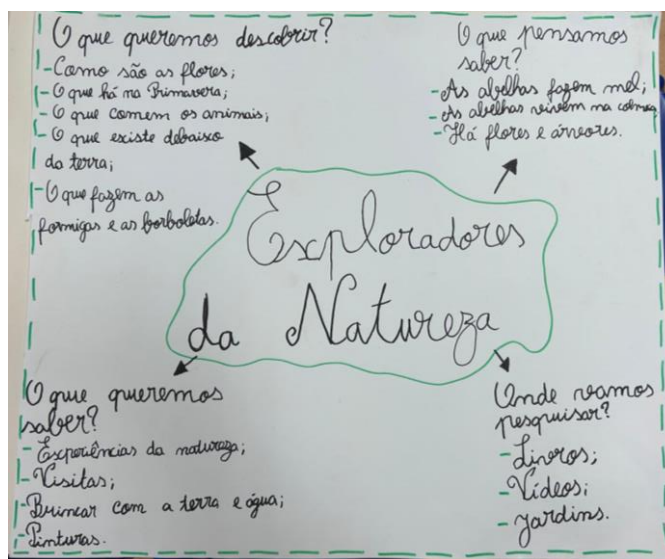 O que queremos descobrir?
- Como são as flores;
- O que há na Primavera;
- O que comem os animais;
- O que existe debaixo
da terra;
- O que fazem as
formigas e as borboletas.
O que pensamos
saber?
- As abelhas fazem mel;
- As abelhas vivem na colmeia;
- Há flores e árvores.
Exploradores
da Natureza
O que queremos
saber?
- Experiências da natureza;
- Visitas;
- Brincar com a terra e água;
- Pinturas.
Onde vamos
pesquisar?
- Livros;
- Vídeos;
- Jardins.